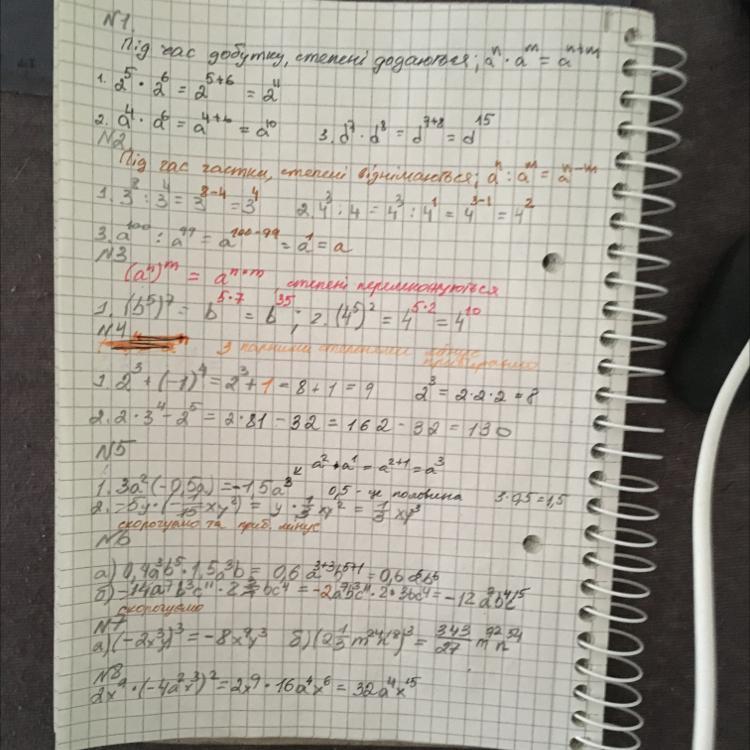 N1.
Під час добутку, степені додаються; aⁿ · aᵐ = aⁿ⁺ᵐ
1. 2⁵ · 2⁶ = 2⁵⁺⁶ = 2¹¹
2. a⁴ · a⁶ = a⁴⁺⁶ = a¹⁰ 3. d⁷ · d⁸ = d⁷⁺⁸ = d¹⁵
N2
Під час частки, степені віднімаються; aⁿ : aᵐ = aⁿ⁻ᵐ
1. 3⁸ : 3⁴ = 3⁸⁻⁴ = 3⁴ 2. 4³ : 4 = 4³ : 4¹ = 4³⁻¹ = 4²
3. a¹⁰⁰ : a⁹⁹ = a¹⁰⁰⁻⁹⁹ = a¹ = a
N3
(aⁿ)ᵐ = aⁿ*ᵐ, степені перемножуються
1. (b⁵)⁷ = b⁵·⁷ = b³⁵; 2. (4⁵)² = 4⁵·² = 4¹⁰
N4
З парними степенями мінус
прибираємо
1. 2³ + (-1)⁴ = 2³ + 1 = 8 + 1 = 9 2³ = 2·2·2 = 8
2. 2·3⁴ - 2⁵ = 2·81 - 32 = 162 - 32 = 130
N5
a² · a¹ = a²⁺¹ = a³
1. 3a²(-0,5a) = -1,5a³ 0,5 - це половина 3·0,5 = 1,5
2. -5y·(-1/15xy²) = y·1/3xy² = 1/3xy³
скорочуємо та приб. мінус
N6
а) 0,4a³b⁵·1,5a³b = 0,6a³⁺³b⁵⁺¹ = 0,6a⁶b⁶
скорочуємо
N7
а) (-2x³y)³ = -8x⁹y³ б) (2 1/3 m²⁴n¹⁸)³ = 343/27 m⁷²n⁵⁴
N8
2x⁹·(-4a²x³)² = 2x⁹·16a⁴x⁶ = 32a⁴x¹⁵